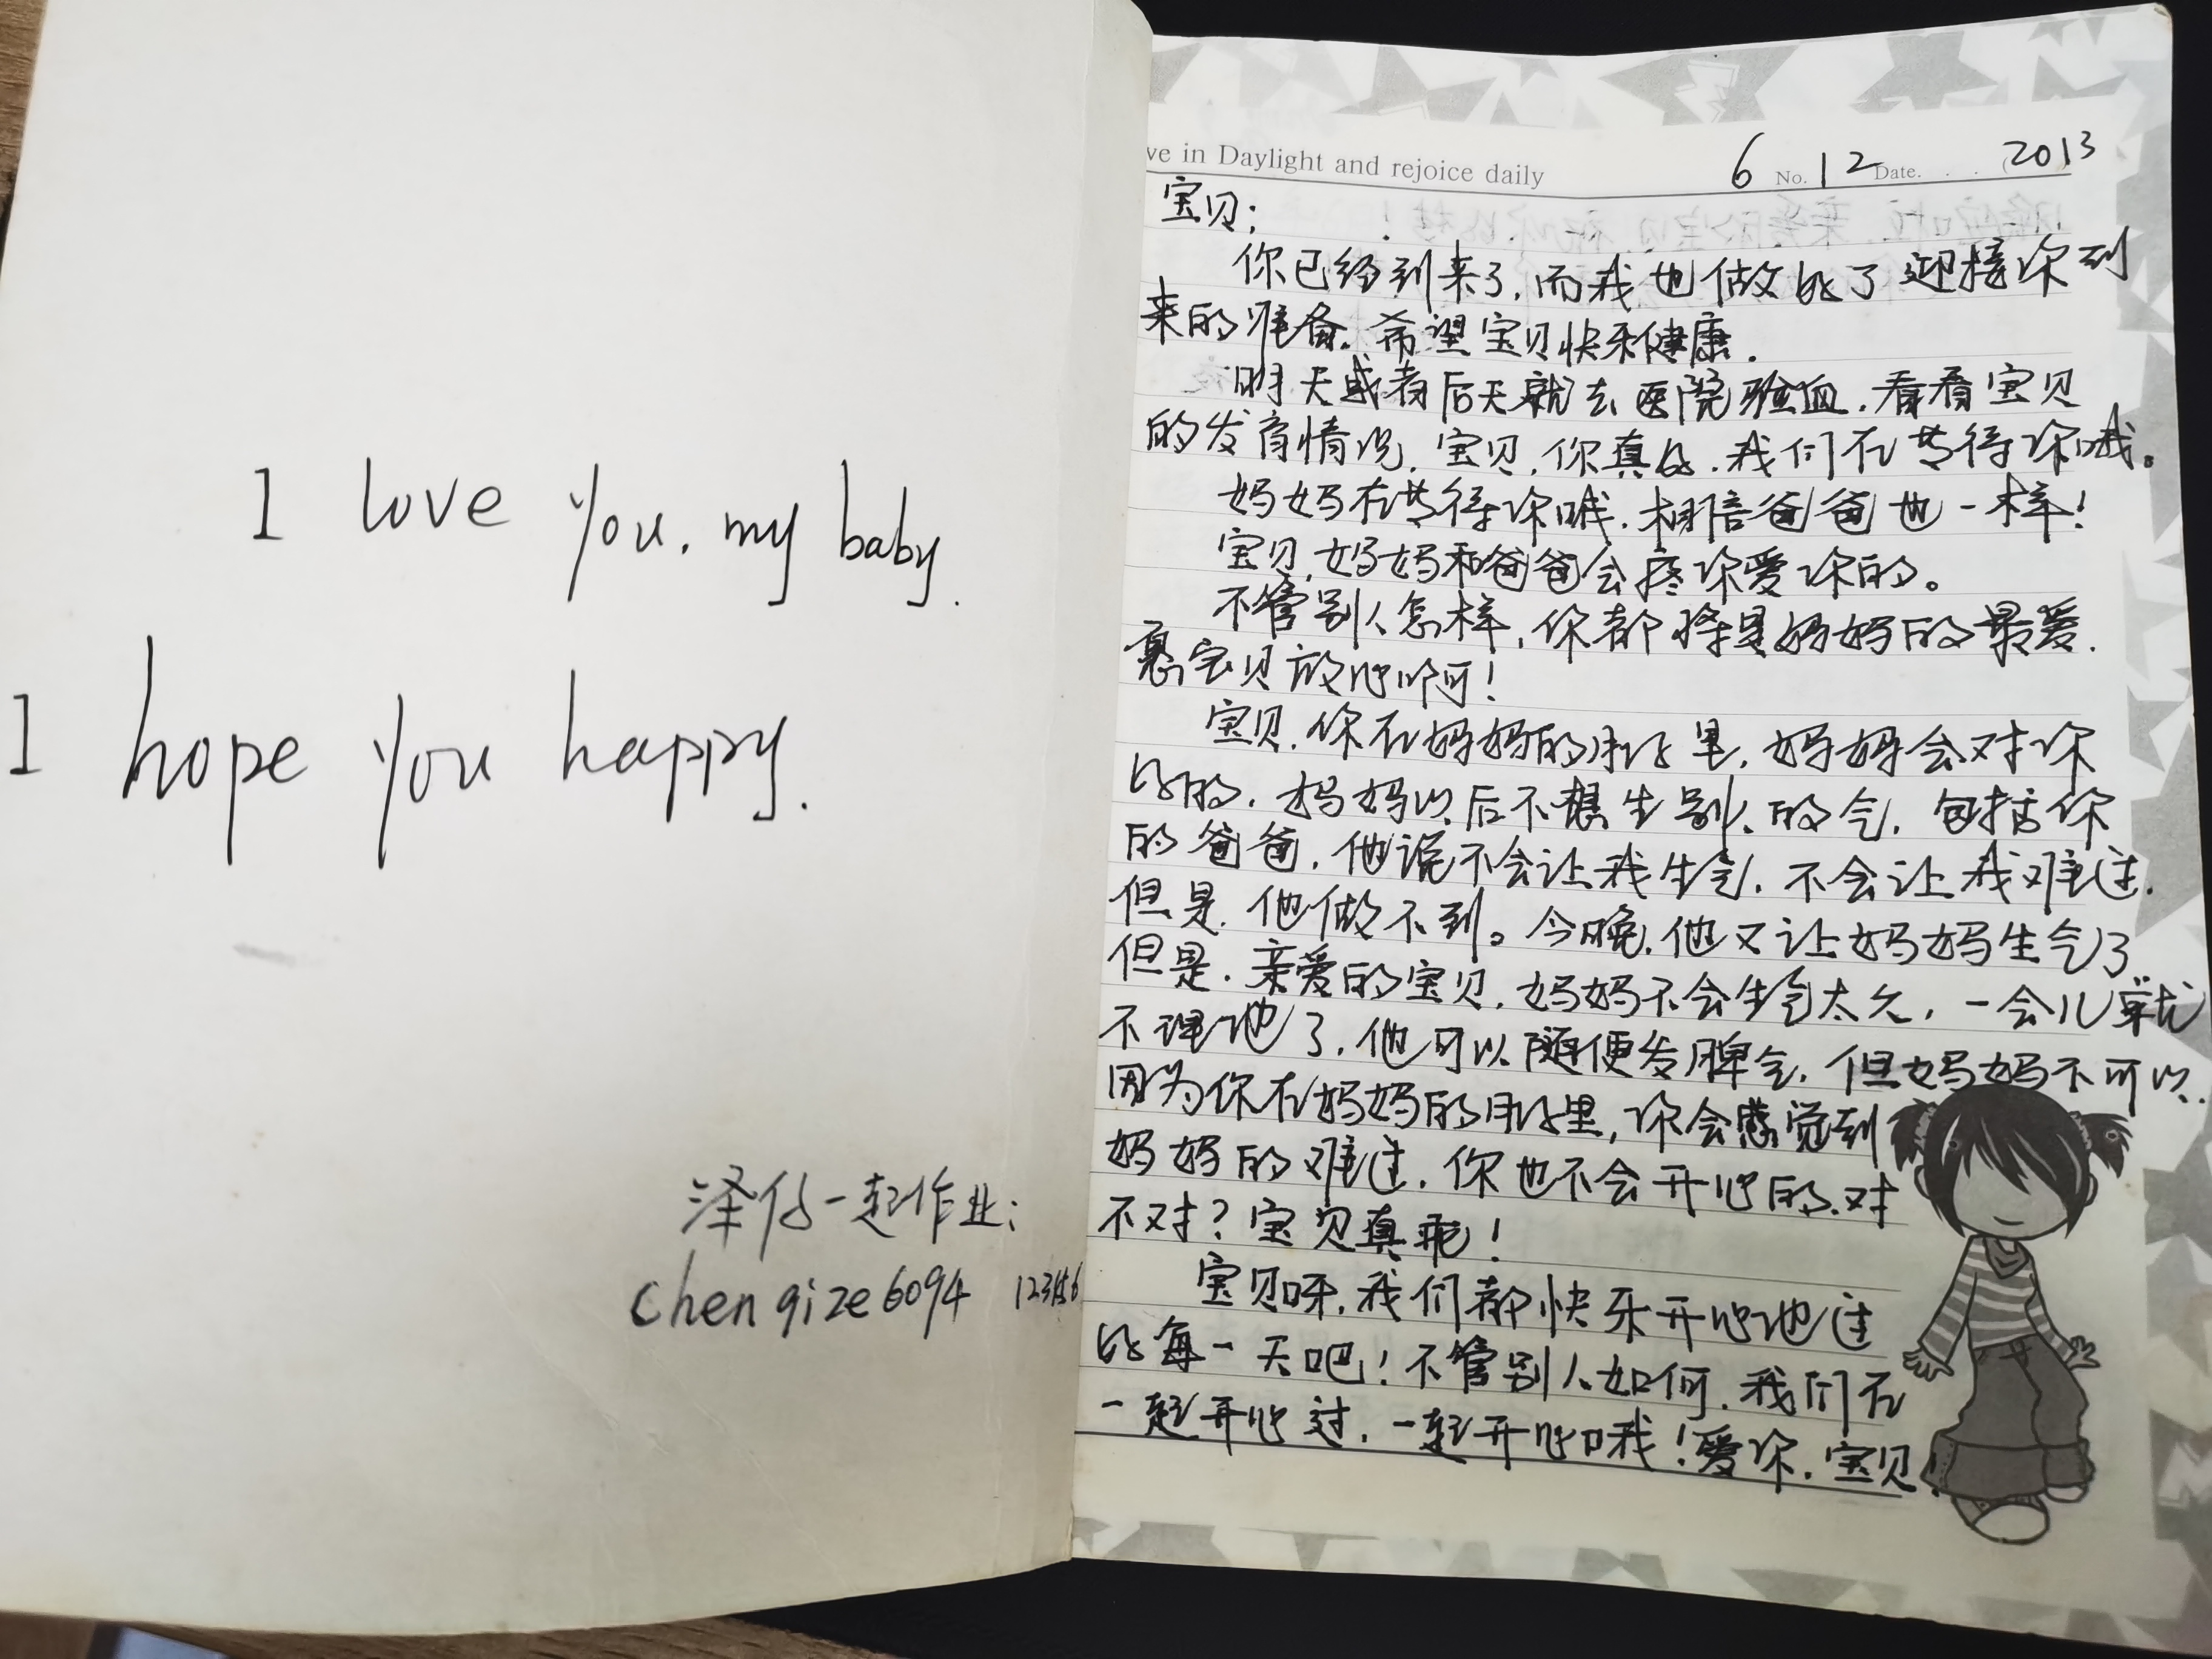 I love you, my baby.
I hope you happy.
泽仔一起作业:
chenqize6094 123456
ve in Daylight and rejoice daily
6 No. 12 Date. . . (2013)
宝贝:
你已经到来了,而我也做好了迎接你到
来的准备,希望宝贝快乐健康.
明天或者后天就去医院验血,看看宝贝
的发育情况,宝贝,你真好,我们在等待你哦。
妈妈在等待你哦,相信爸爸也一样!
宝贝,妈妈和爸爸会疼你爱你的。
不管别人怎样,你都将是妈妈的最爱.
宝贝放心啊!
宝贝,你在妈妈的肚子里,妈妈会对你
好的,妈妈以后不想生别人的气,包括你
的爸爸,他说不会让我生气,不会让我难过.
但是,他做不到。今晚,他又让妈妈生气了
但是,亲爱的宝贝,妈妈不会生气太久,一会儿就
不理他了,他可以随便发脾气,但妈妈不可以.
因为你在妈妈的肚子里,你会感觉到
妈妈的难过,你也不会开心的,对
不对?宝贝真乖!
宝贝呀,我们都快乐开心地过
好每一天吧!不管别人如何,我们在
一起开心过,一起开心哦!爱你,宝贝!